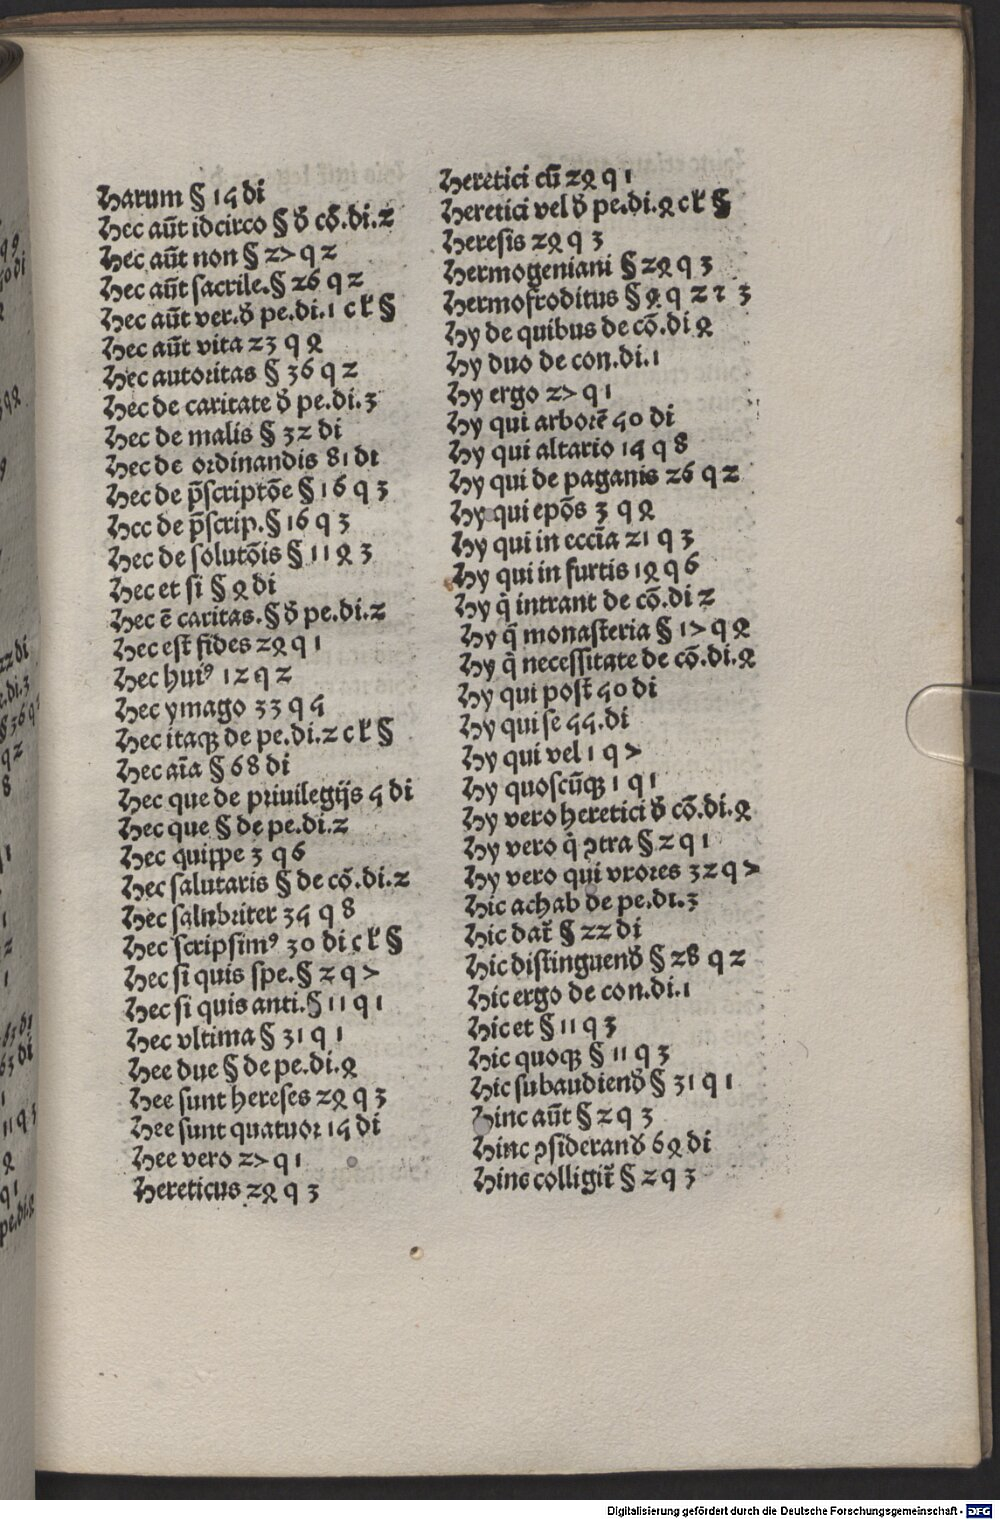 Harum § 15 di
Hec aūt idcirco § đ cō.di.2
Hec aūt non § 27 q 2
Hec aūt sacrile.§ 26 q 2
Hec aūt ver.đ pe.di.1 c k̄ §
Hec aūt vita 23 q 4
Hec autoritas § 36 q 2
Hec de caritate đ pe.di.3
Hec de malis § 32 di
Hec de ordinandis 81 di
Hec de p̄scriptōe § 16 q 3
Hec de p̄scrip.§ 16 q 3
Hec de solutōis § 11 4 3
Hec et si § 4 di
Hec ē caritas.§ đ pe.di.2
Hec est fides 24 q 1
Hec huiꝰ 12 q 2
Hec ymago 33 q 5
Hec itaqꝫ de pe.di.2 c k̄ §
Hec aīa § 68 di
Hec que de priuilegijs 5 di
Hec que § de pe.di.2
Hec quippe 3 q 6
Hec salutaris § de cō.di.2
Hec salubriter 35 q 8
Hec scripsimꝰ 30 di c k̄ §
Hec si quis spe.§ 2 q 7
Hec si quis anti.§ 11 q 1
Hec vltima § 31 q 1
Hee due § de pe.di.4
Hee sunt hereses 24 q 3
Hee sunt quatuor 15 di
Hee vero 27 q 1
Hereticus 24 q 3
Heretici cū 24 q 1
Heretici vel đ pe.di.4 c k̄ §
Heresis 24 q 3
Hermogeniani § 24 q 3
Hermofroditus § 4 q 2 ⁊ 3
Hy de quibus de cō.di 4
Hy duo de con.di.1
Hy ergo 27 q 1
Hy qui arborē 50 di
Hy qui altario 15 q 8
Hy qui de paganis 26 q 2
Hy qui epōs 3 q 4
Hy qui in eccīa 21 q 3
Hy qui in furtis 14 q 6
Hy q̄ intrant de cō.di 2
Hy q̄ monasteria § 17 q 4
Hy q̄ necessitate de cō.di.4
Hy qui post 50 di
Hy qui se 55.di
Hy qui vel 1 q 7
Hy quoscūqꝫ 1 q 1
Hy vero heretici đ cō.di.4
Hy vero q̄ ꝯtra § 2 q 1
Hy vero qui vxores 32 q 7
Hic achab de pe.di.3
Hic dat̄ § 22 di
Hic distinguenđ § 28 q 2
Hic ergo de con.di.1
Hic et § 11 q 3
Hic quoqꝫ § 11 q 3
Hic subaudienđ § 31 q 1
Hinc aūt § 2 q 3
Hinc ꝯsideranđ 64 di
Hinc colligit̄ § 2 q 3
Digitalisierung gefördert durch die Deutsche Forschungsgemeinschaft - DFG